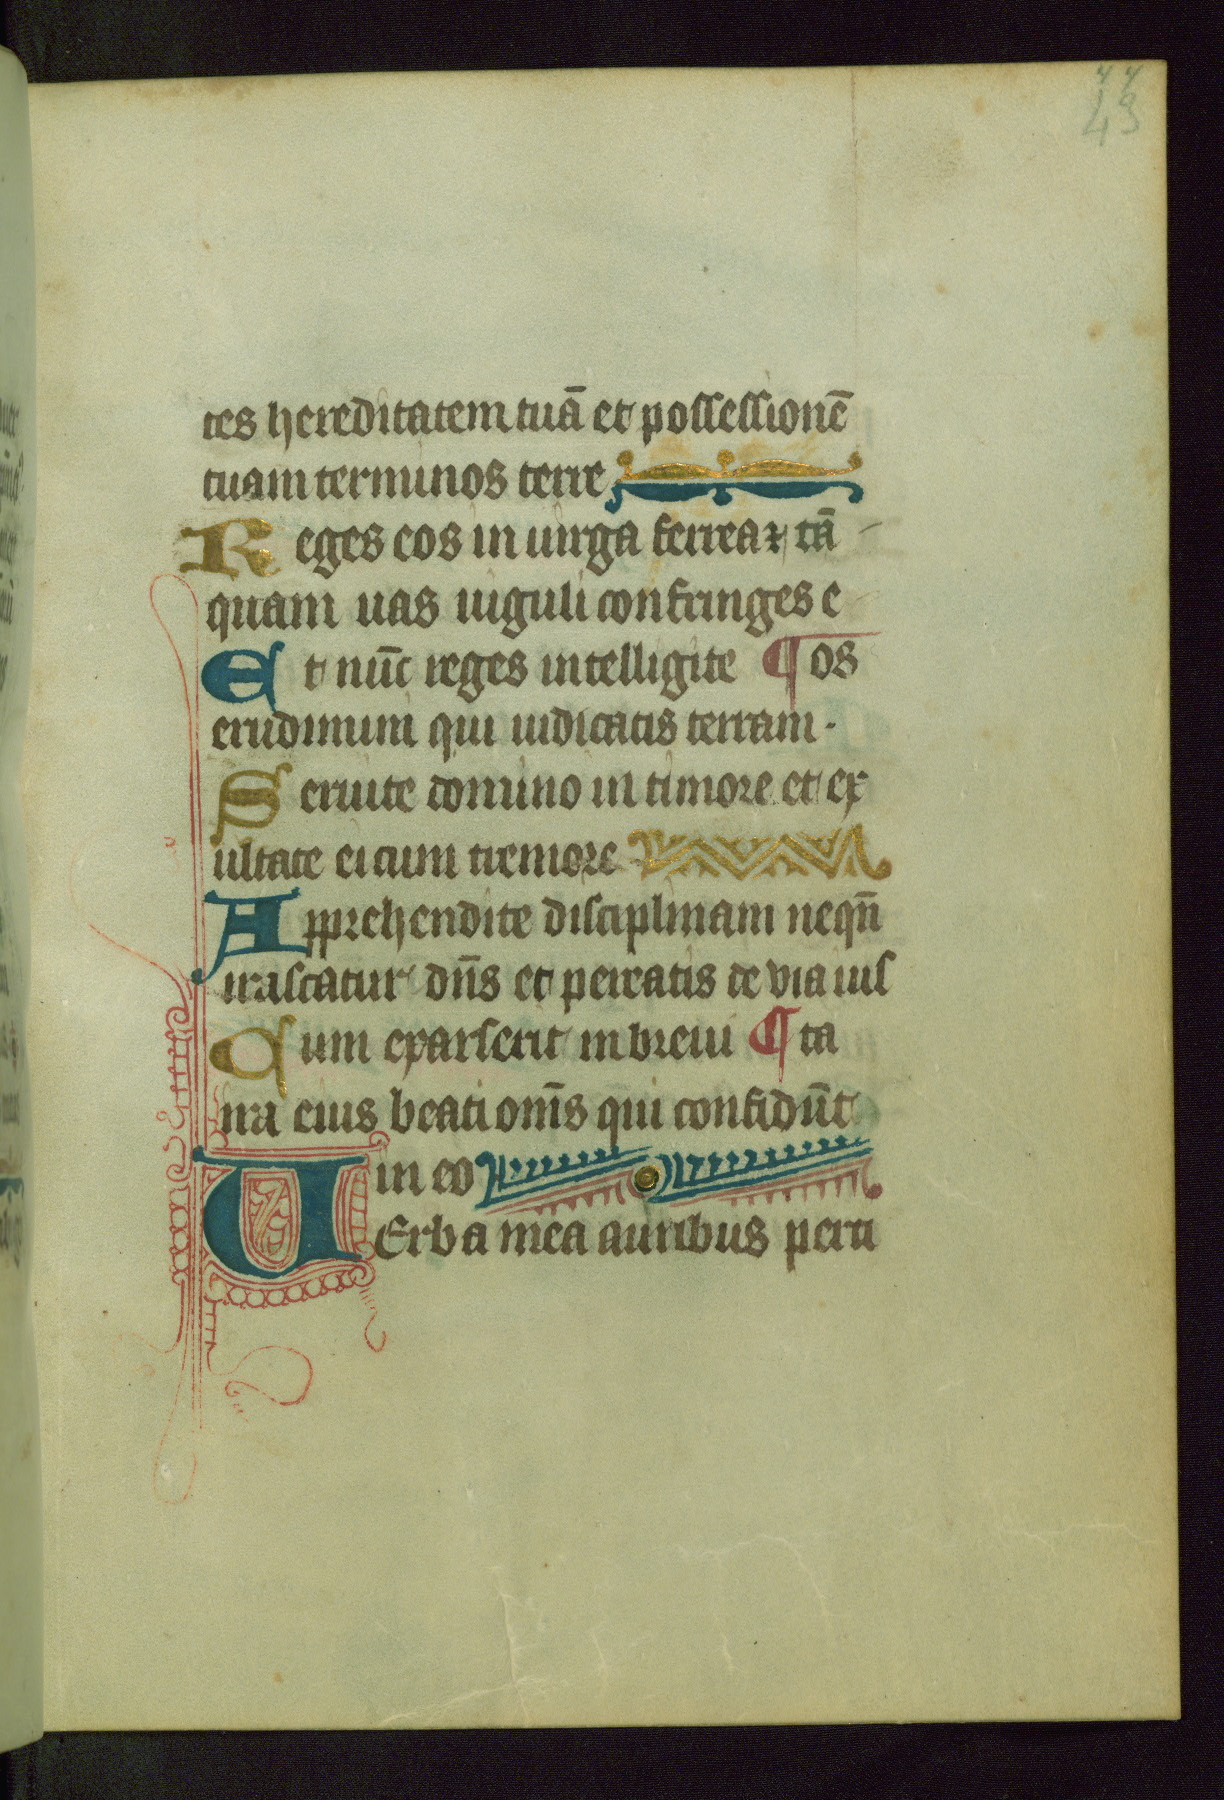 43
tes hereditatem tuā et possessionē
tuam terminos terre
Reges eos in uirga ferrea ⁊ tā
quam uas uiguli confringes e
Et nūc reges intelligite ¶ os
erudimum qui iudicatis terram.
Seruite domino in timore et ex
ultate ei cum tremore
Apprehendite disciplinam neqn̄
irascatur dn̄s et pereatis de via ius
Cum exarserit in breui ¶ ta
ira eius beati om̄s qui confidūt
in eo
VErba mea auribus perci